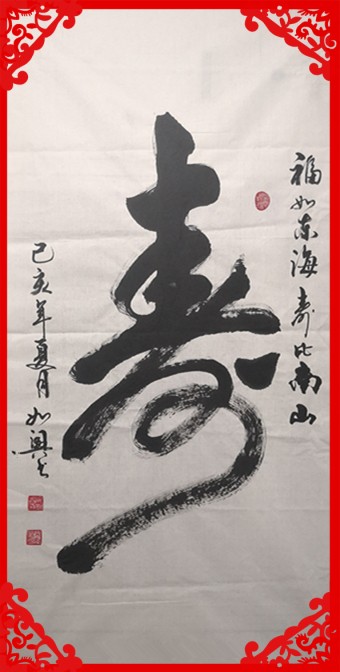 福如东海寿比南山
寿
己亥年夏月如兴书